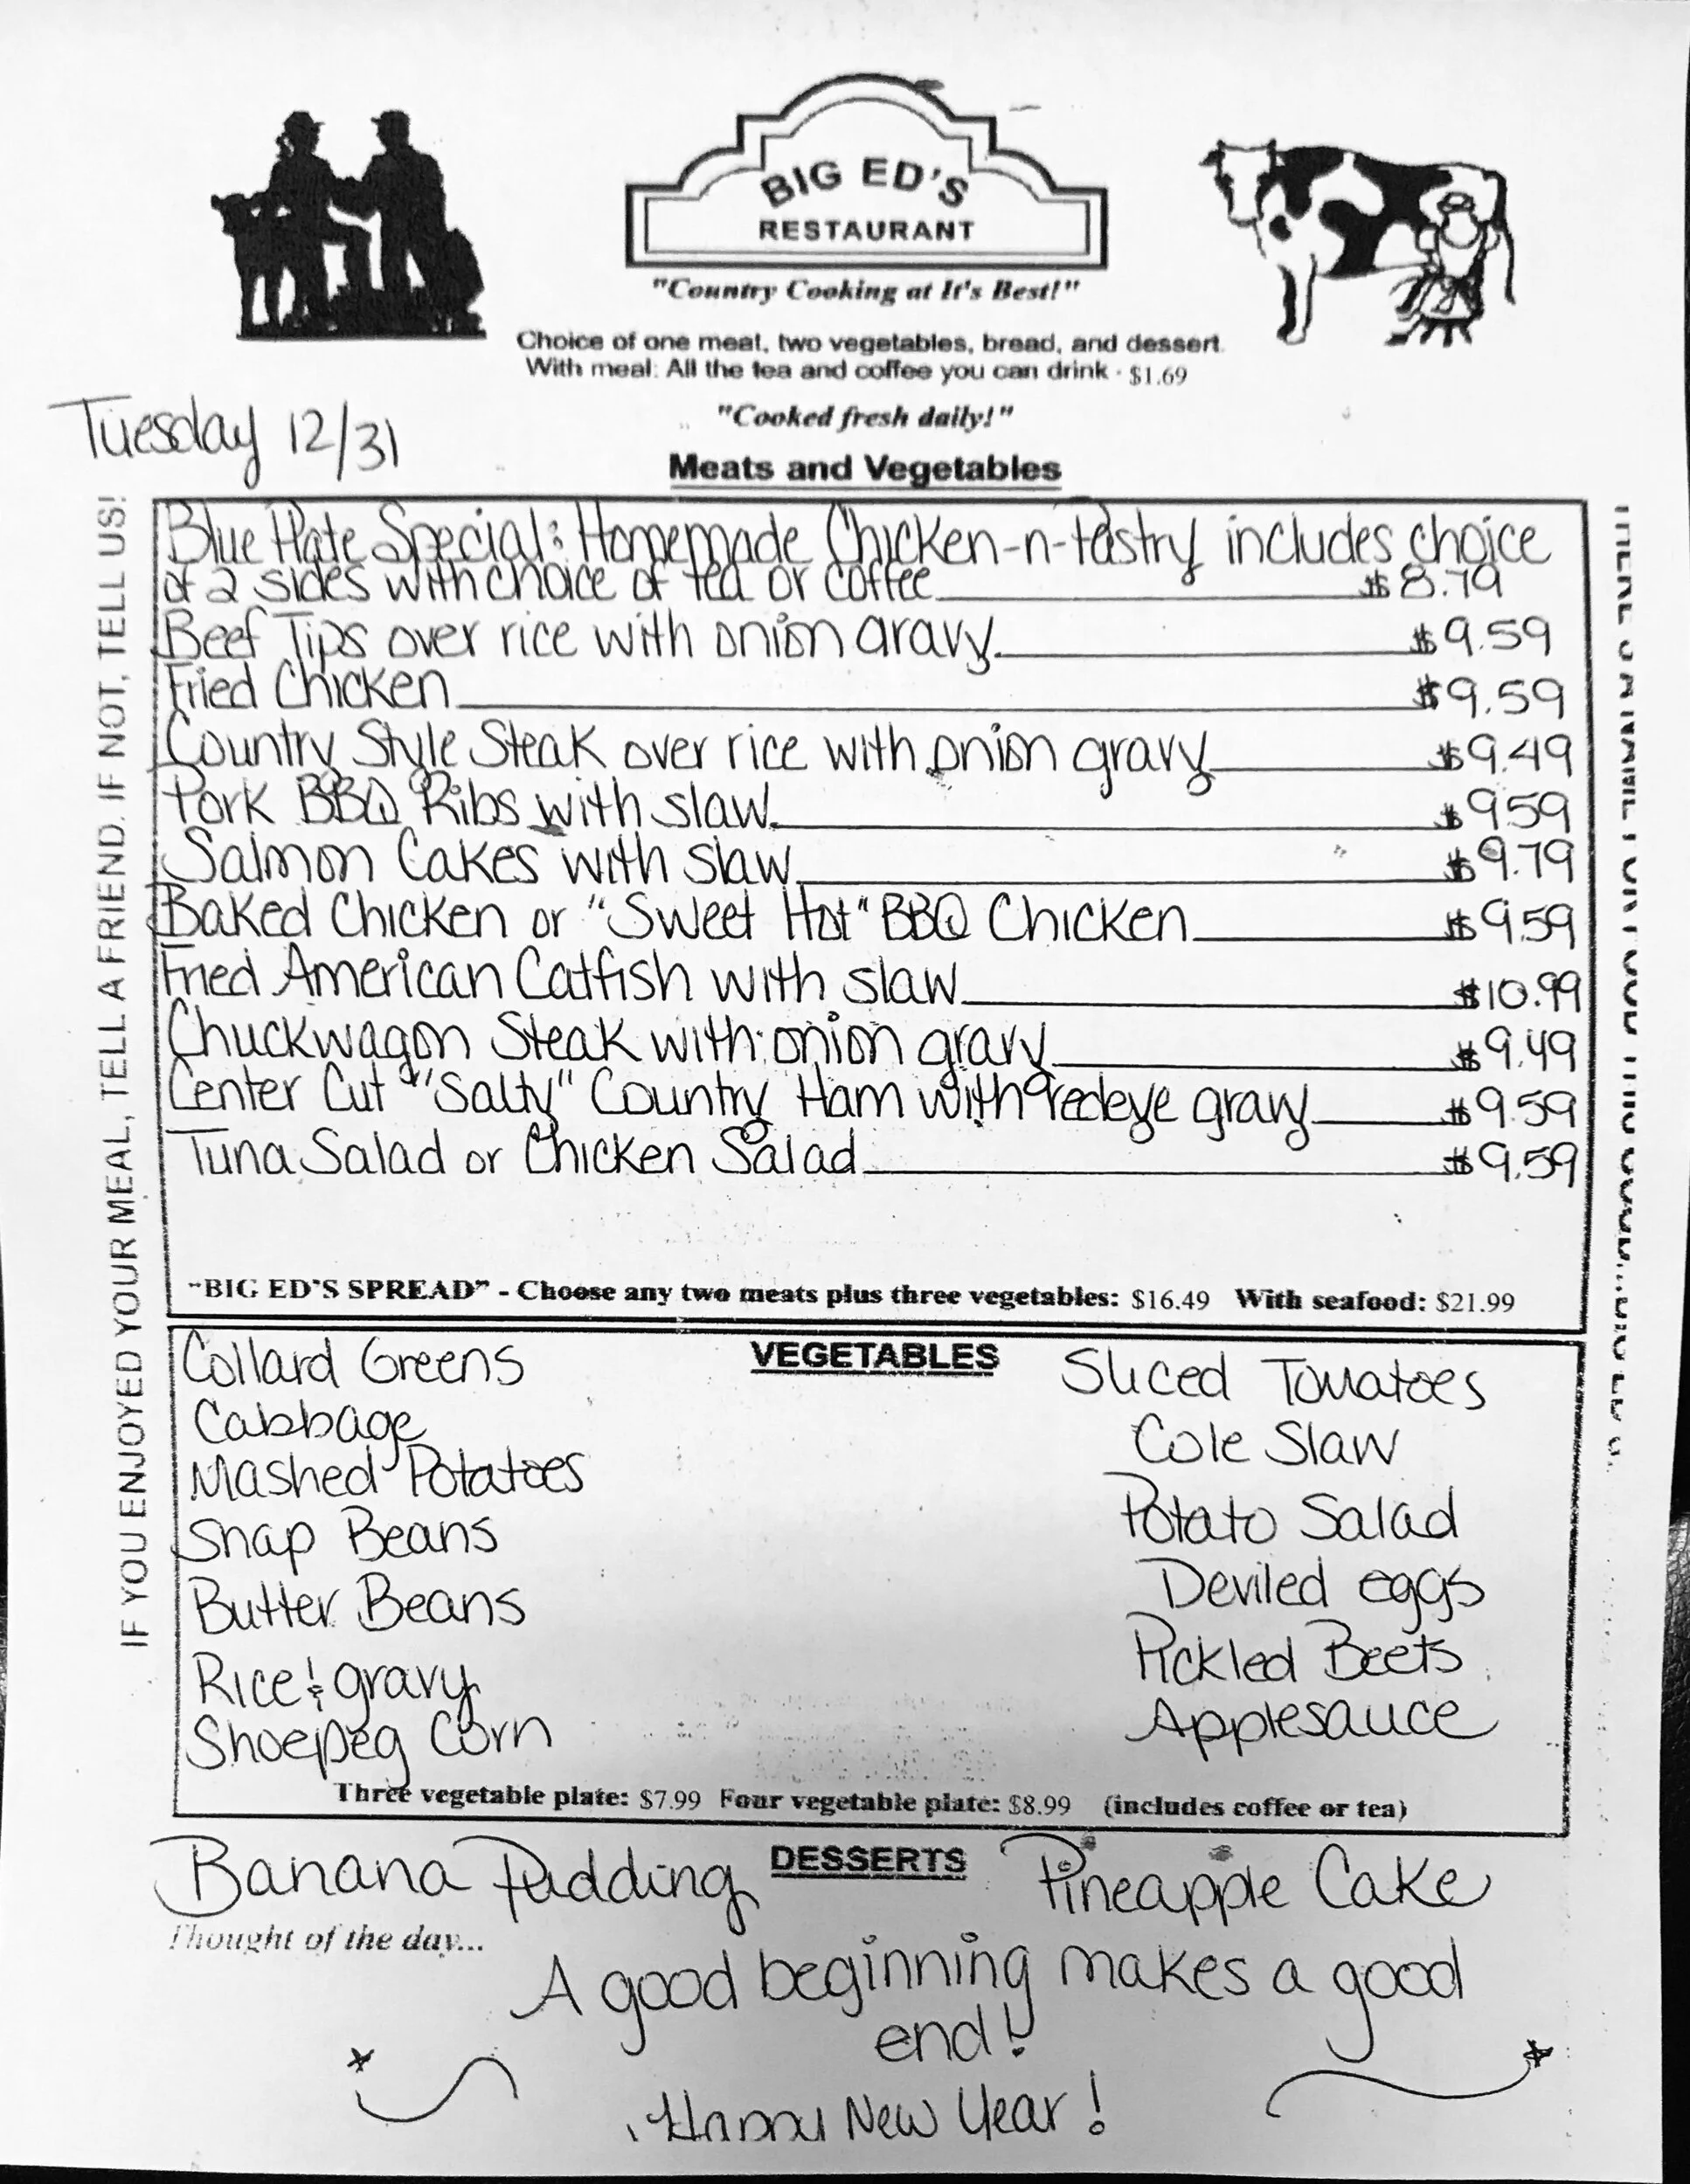 BIG ED'S
RESTAURANT
"Country Cooking at It's Best!"
Choice of one meat, two vegetables, bread, and dessert.
With meal: All the tea and coffee you can drink - $1.69
"Cooked fresh daily!"
Tuesday 12/31
Meats and Vegetables
IF YOU ENJOYED YOUR MEAL, TELL A FRIEND. IF NOT, TELL US!
Blue Plate Special: Homemade Chicken-n-Pastry includes choice
of 2 sides with choice of tea or coffee $8.79
Beef Tips over rice with onion gravy $9.59
Fried Chicken $9.59
Country Style Steak over rice with onion gravy $9.49
Pork BBQ Ribs with slaw $9.59
Salmon Cakes with slaw $9.79
Baked Chicken or "Sweet Hot" BBQ Chicken $9.59
Fried American Catfish with slaw $10.99
Chuckwagon Steak with onion gravy $9.49
Center Cut "Salty" Country Ham with redeye gravy $9.59
Tuna Salad or Chicken Salad $9.59
"BIG ED'S SPREAD" - Choose any two meats plus three vegetables: $16.49 With seafood: $21.99
VEGETABLES
Collard Greens
Cabbage
Mashed Potatoes
Snap Beans
Butter Beans
Rice & gravy
Shoepeg Corn
Sliced Tomatoes
Cole Slaw
Potato Salad
Deviled eggs
Pickled Beets
Applesauce
Three vegetable plate: $7.99 Four vegetable plate: $8.99 (includes coffee or tea)
DESSERTS
Banana Pudding
Pineapple Cake
Thought of the day...
A good beginning makes a good
end!
Happy New Year!